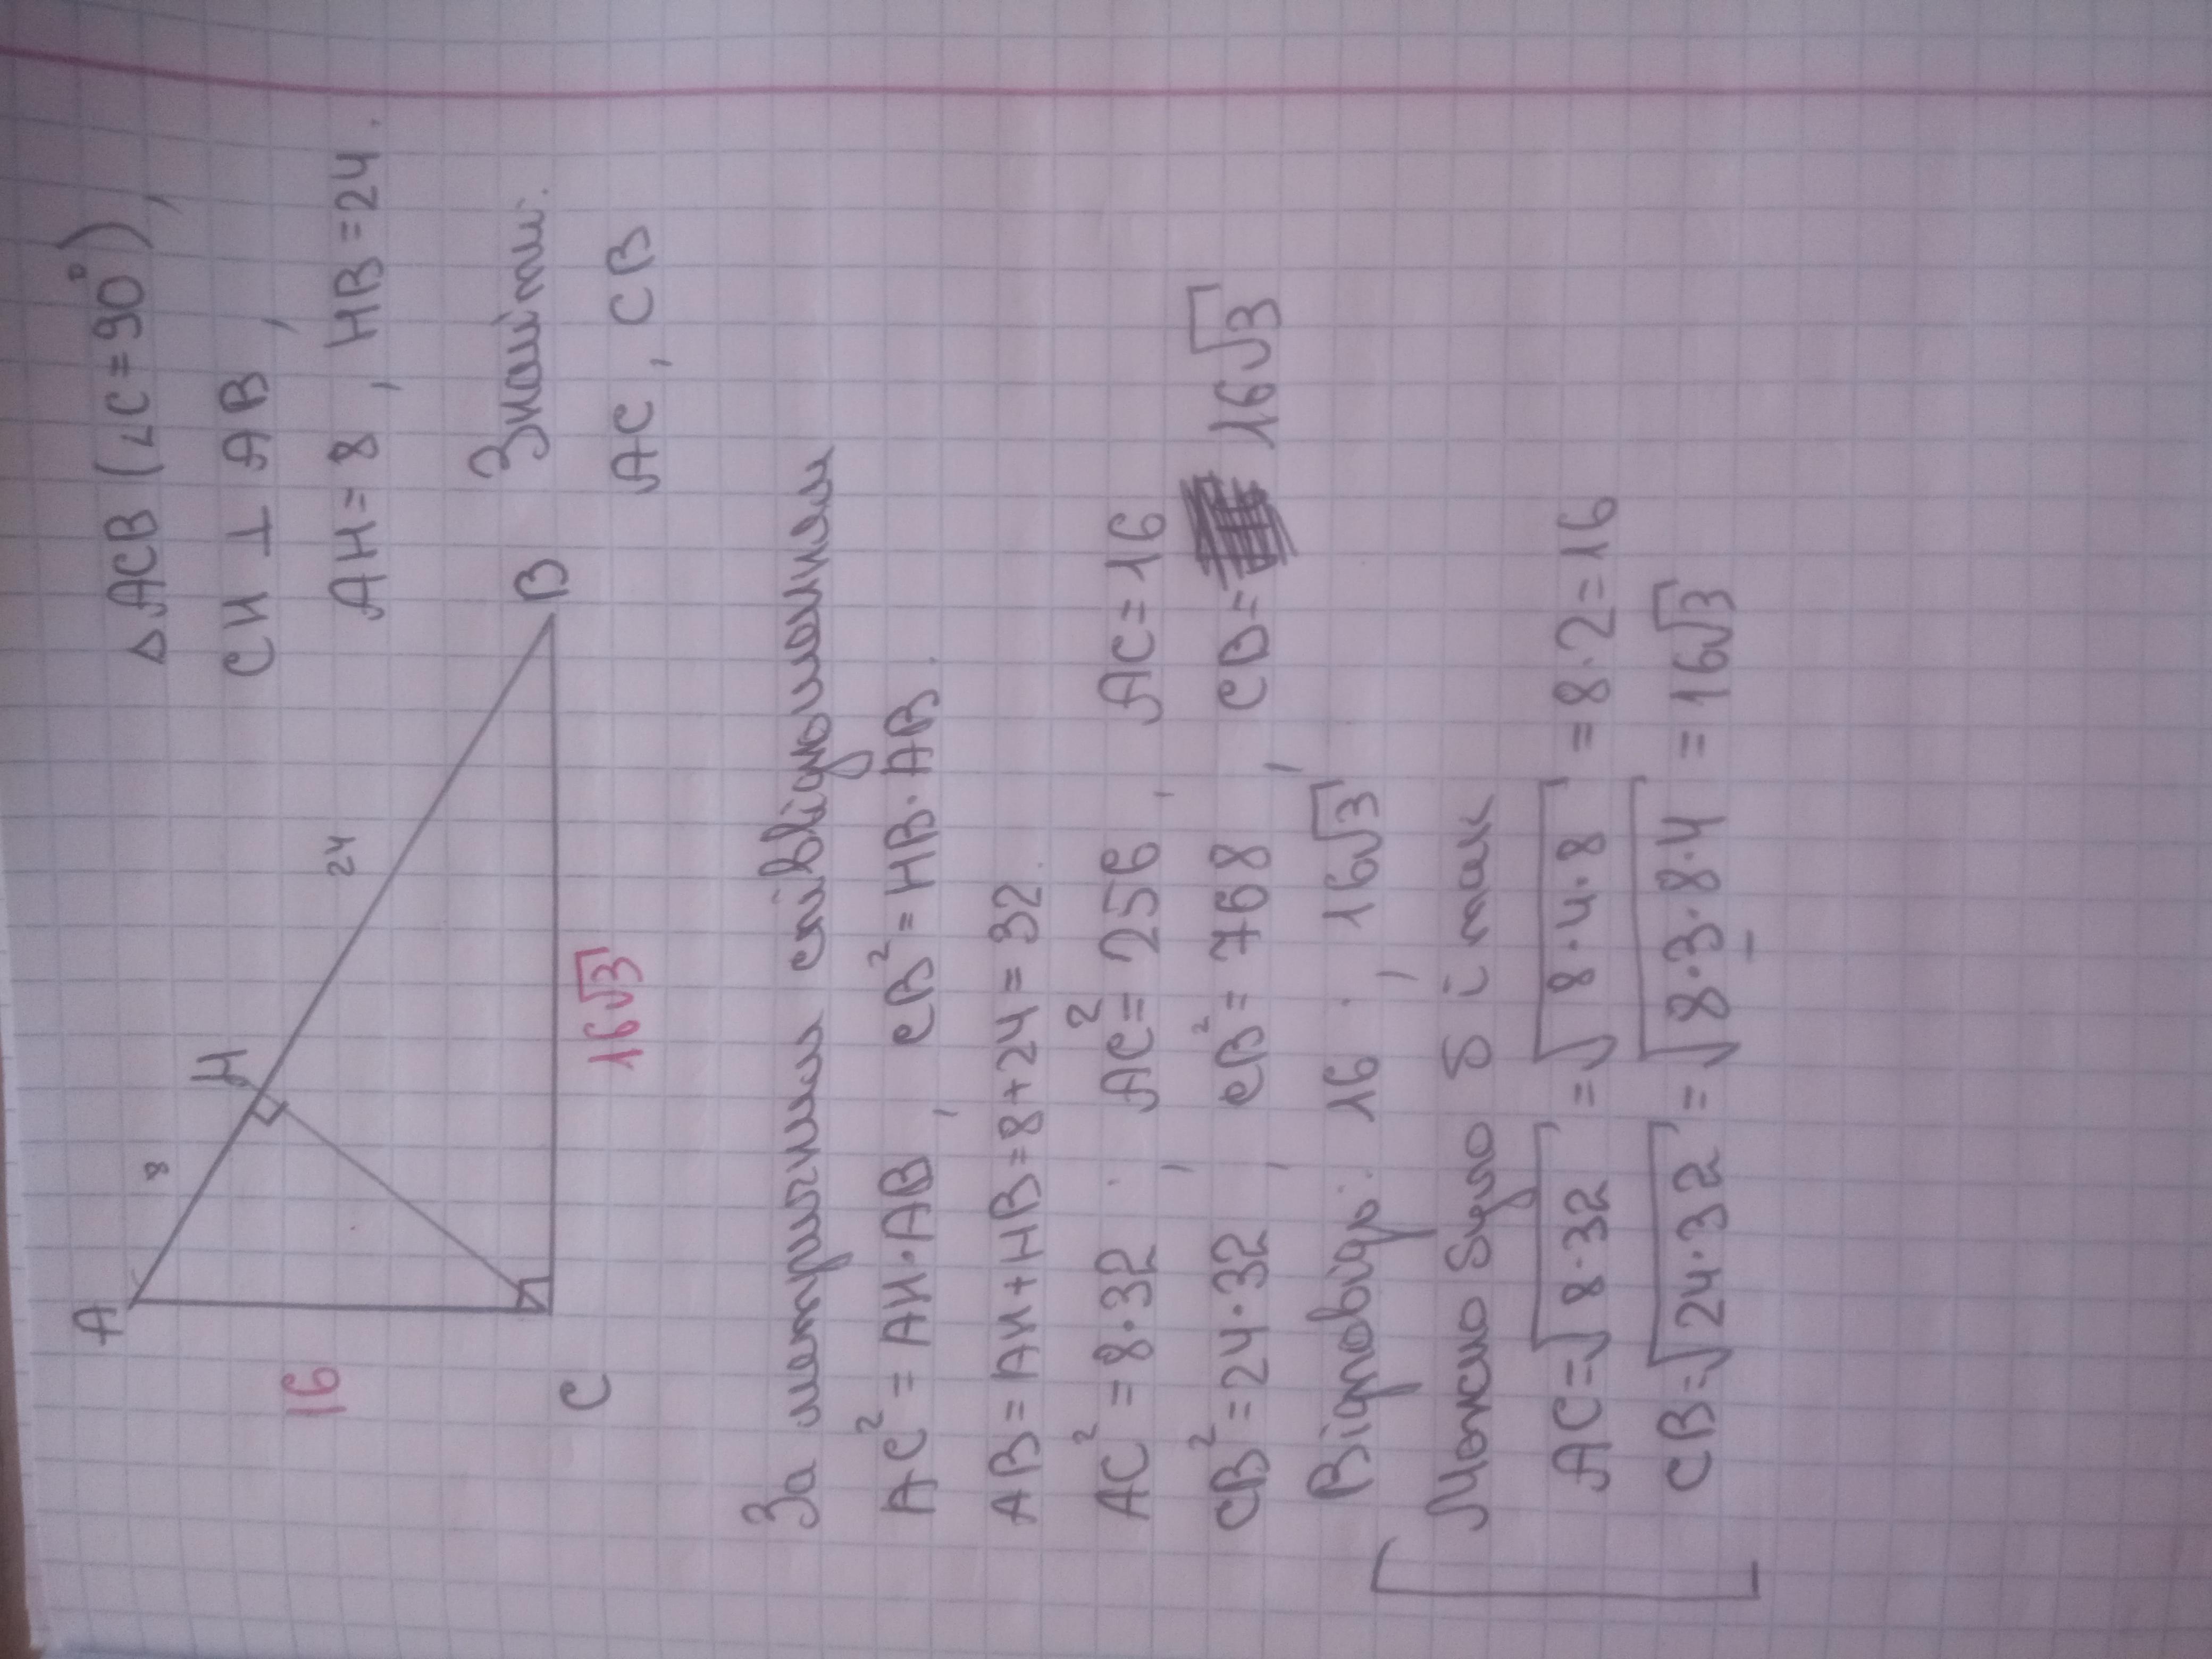 A
H
B
C
8
24
16
16√3
△ ACB (∠C = 90°),
CH ⊥ AB,
AH = 8, HB = 24.
Знайти:
AC, CB
За метричними співвідношеннями
AC² = AH·AB, CB² = HB·AB.
AB = AH + HB = 8 + 24 = 32.
AC² = 8·32, AC² = 256, AC = 16
CB² = 24·32, CB² = 768, CB = 16√3
Відповідь: 16; 16√3
Можно було б і так
AC = √8·32 = √8·4·8 = 8·2 = 16
CB = √24·32 = √8·3·8·4 = 16√3